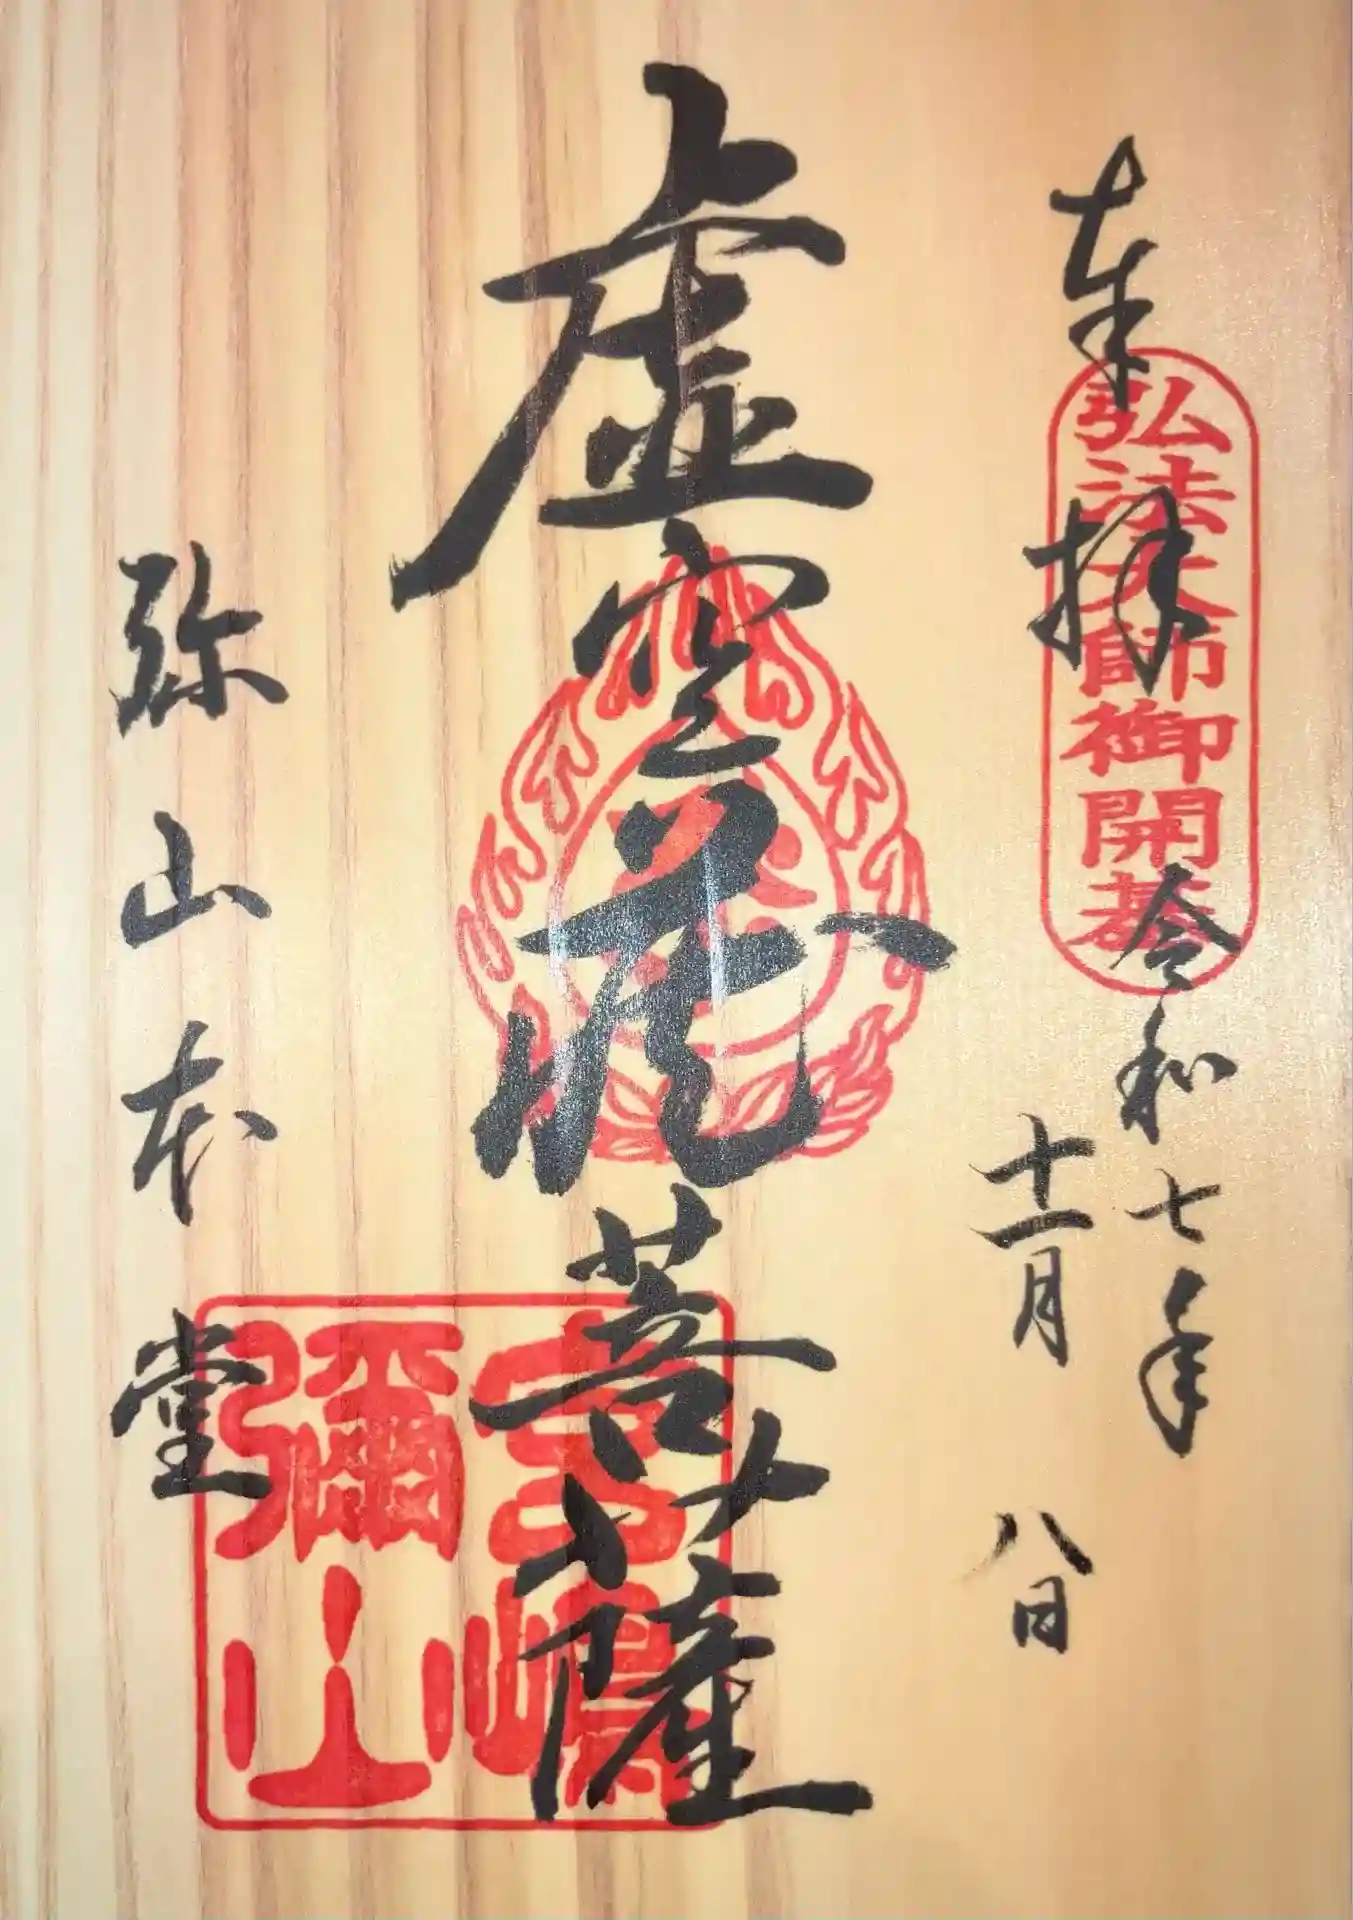 奉拝
弘法大師御開基
令和七年
十一月八日
虚空蔵菩薩
弥山本堂
宮嶋
彌山